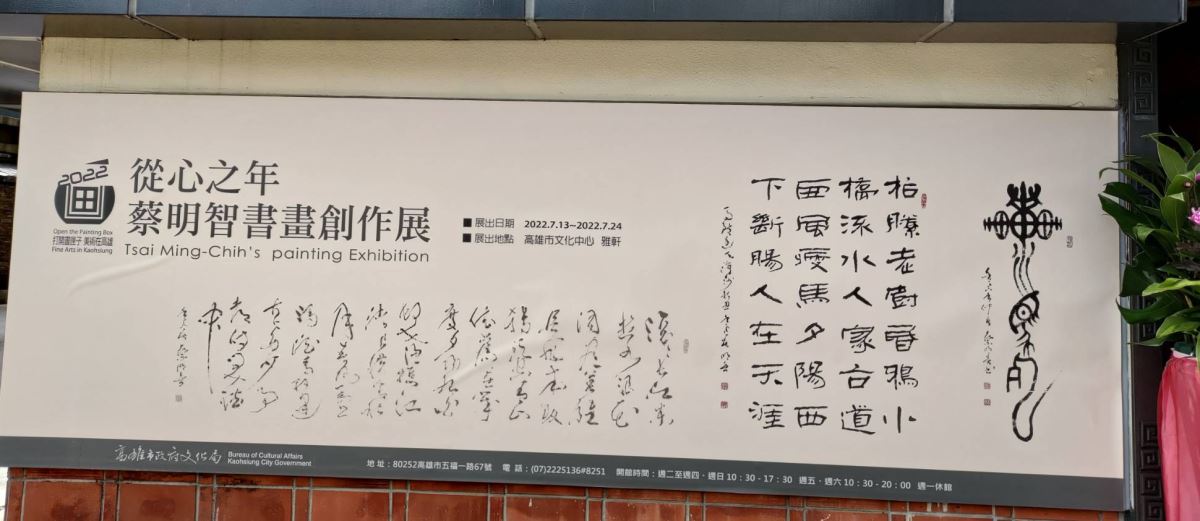 2022
Open the Painting Box
打開畫匣子 美術在高雄
Fine Arts in Kaohsiung
從心之年
蔡明智書畫創作展
Tsai Ming-Chih's painting Exhibition
■ 展出日期 2022.7.13~2022.7.24
■ 展出地點 高雄市文化中心 雅軒
枯藤老樹昏鴉小
橋流水人家古道
西風瘦馬夕陽西
下斷腸人在天涯
滾滾長江東
逝水浪花
淘盡英雄
是非成敗
轉頭空青山
依舊在幾
度夕陽紅白
髮漁樵江
渚上慣看秋
月春風一壺
濁酒喜相逢
古今多少事
都付笑談
中
高雄市政府文化局
Bureau of Cultural Affairs
Kaohsiung City Government
地 址：80252高雄市五福一路67號 電 話：(07)2225136#8251 開館時間：週二至週四、週日 10：30 - 17：30 週五、週六 10：30 - 20：00 週一休館